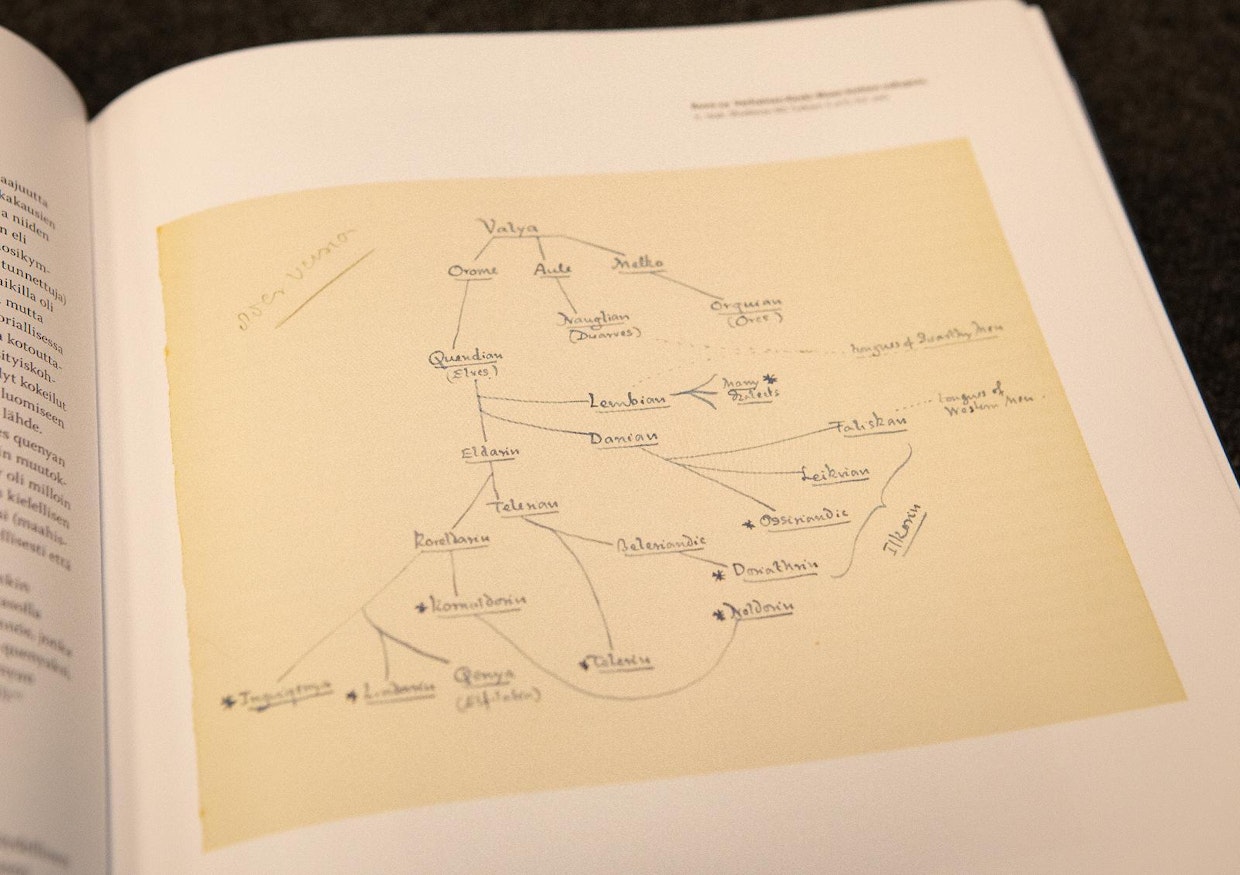 aajuutta
kakausien
a niiden
n eli
osikym-
tunnettuja)
aikilla oli
mutta
oriallisessa
kotoutta-
sityiskoh-
lyt kokeilut
luomiseen
lähde.
es quenyan
in muutok-
y oli milloin
s kielellisen
si (maahis-
llisesti että
version
Valya
Orome Aule Melko
Orquian
(Orcs)
Nauglian
(Dwarves)
tongues of Swarthy Men
Quendian
(Elves)
Lembian
Many *
Dialects
tongues of
Western Men
Danian
Taliskan
Eldarin
Leikvian
Telerian
* Ossiriandic
Ilkorin
Koreldarin
Beleriandic
* Doriathrin
* Kornoldorin
* Noldorin
* Telerin
* Ingwiqenya
* Lindarin
Qenya
(Elf-latin)